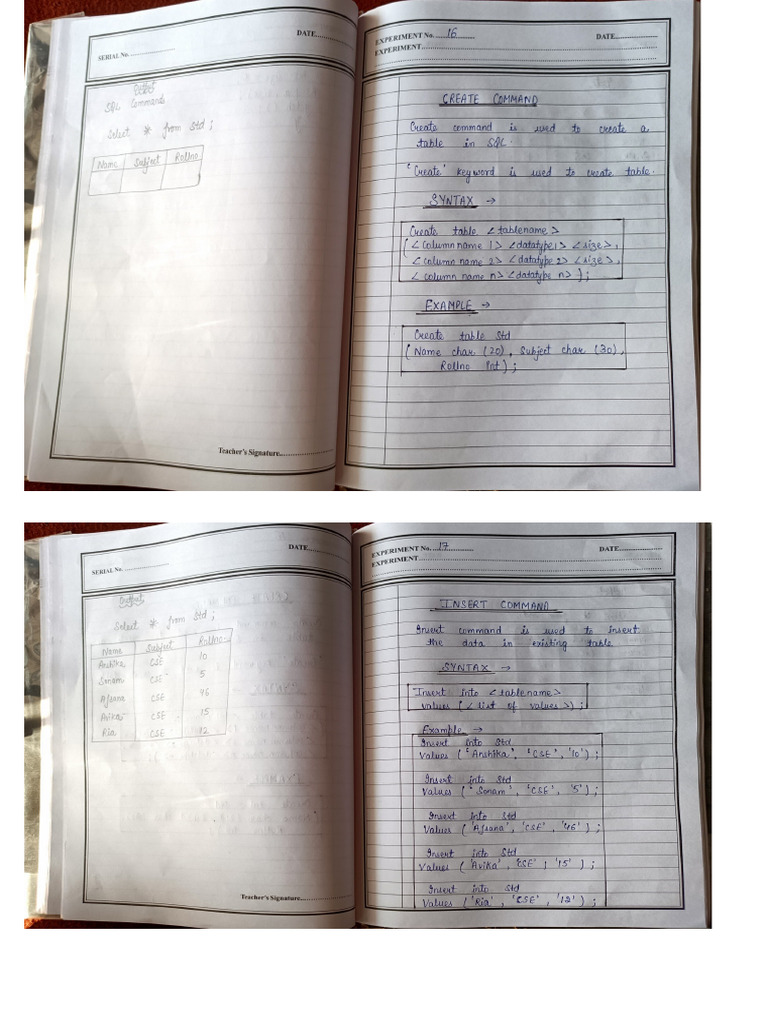 SERIAL No.
DATE
Output
SQL Commands
Select * from Std ;
Name Subject Rollno
Teacher's Signature
EXPERIMENT No. 16
DATE
EXPERIMENT
CREATE COMMAND
Create command is used to create a
table in SQL.
'Create' keyword is used to create table.
SYNTAX →
Create table <tablename>
(<column name 1> <datatype1> <size>,
<column name 2> <datatype 2> <size>,
<column name n> <datatype n> );
EXAMPLE →
Create table Std
(Name char (20), Subject char (30),
Rollno Int) ;
SERIAL No.
DATE
Output
Select * from Std ;
Name Subject Rollno
Anshika CSE 10
Sonam CSE 5
Afsana CSE 46
Avika CSE 15
Ria CSE 12
Teacher's Signature
EXPERIMENT No. 17
DATE
EXPERIMENT
INSERT COMMAND
Insert command is used to insert
the data in existing table.
SYNTAX →
Insert into <tablename>
values (< list of values >) ;
Example →
Insert into Std
Values ('Anshika', 'CSE', '10') ;
Insert into Std
Values ('Sonam', 'CSE', '5') ;
Insert into Std
Values ('Afsana', 'CSE', '46') ;
Insert into Std
Values ('Avika', 'CSE' ; '15') ;
Insert into Std
Values ('Ria', 'CSE', '12') ;